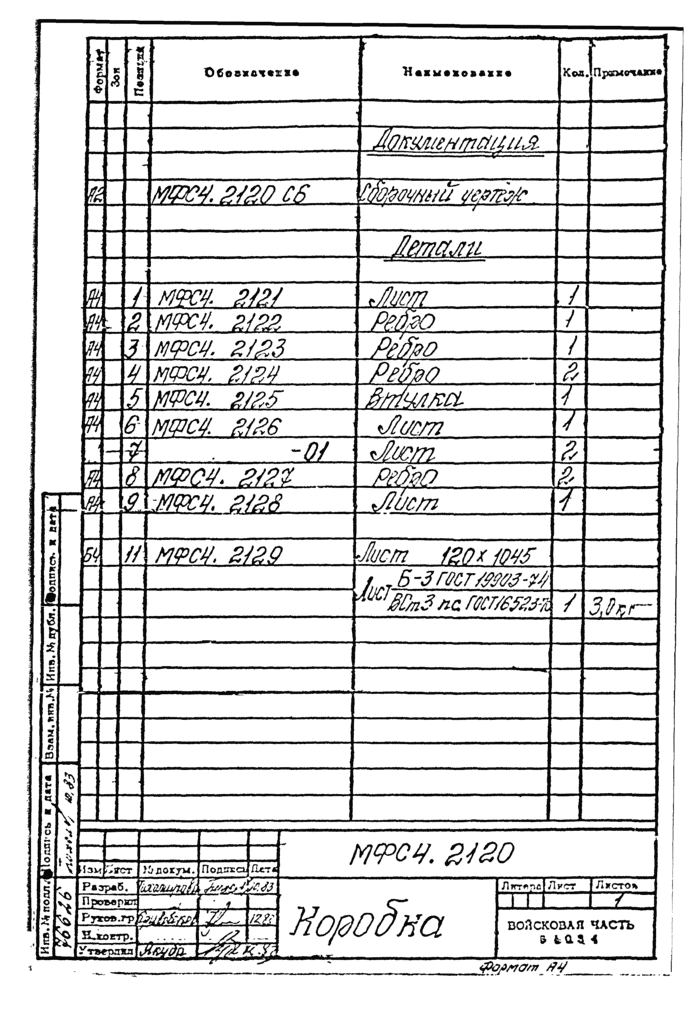 Формат Зон Позиция Обозначение Наименование Кол. Примечание
Документация
А2 МФС4. 2120 СБ Сборочный чертеж
Детали
А4 1 МФС4. 2121 Лист 1
А4 2 МФС4. 2122 Ребро 1
А4 3 МФС4. 2123 Ребро 1
А4 4 МФС4. 2124 Ребро 2
А4 5 МФС4. 2125 Втулка 1
А4 6 МФС4. 2126 Лист 1
7 -01 Лист 2
А4 8 МФС4. 2127 Ребро 2
А4 9 МФС4. 2128 Лист 1
Б4 11 МФС4. 2129 Лист 120 х 1045
Лист Б-3 ГОСТ 19903-74
ВСт3 пс ГОСТ 16523-70 1 3,0 кг
Инв. № подл. Подпись и дата Взам. инв. № Инв. № публ. Подпись и дата
10.83
МФС4. 2120
Изм Лист № докум. Подпись Дата
Разраб. 10.83
Проверил
Руков.гр
Н.контр.
Утвердил Якуба
Коробка
Литера Лист Листов
1
ВОЙСКОВАЯ ЧАСТЬ
Формат А4